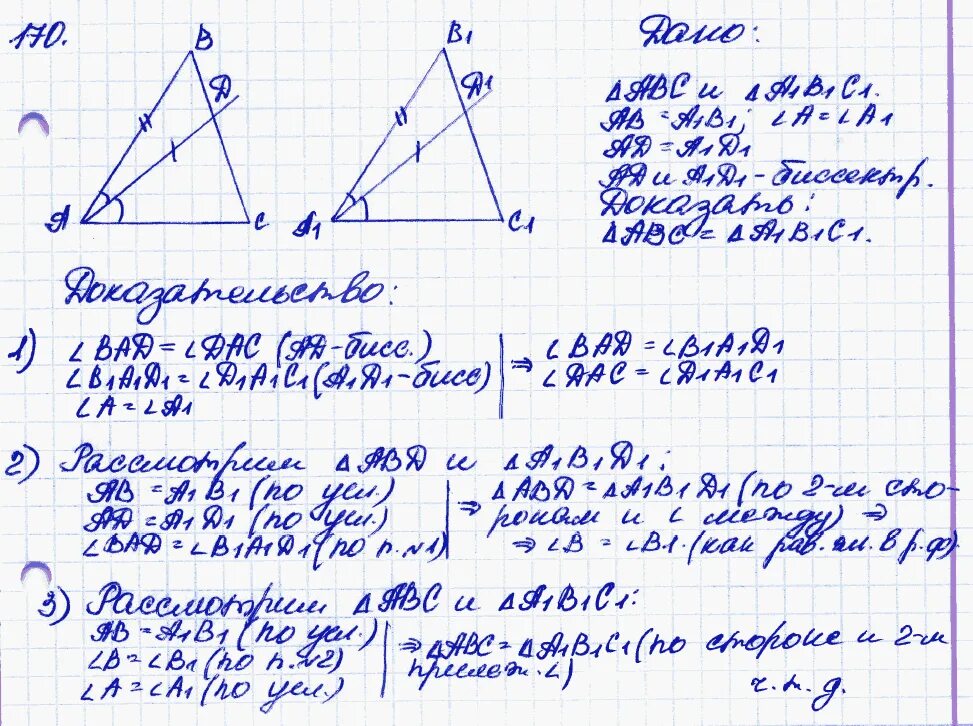 170.
B
D
A
C
B1
D1
A1
C1
Дано:
△ABC и △A1B1C1.
AB = A1B1; ∠A = ∠A1
AD = A1D1
AD и A1D1 - биссектр.
Доказать:
△ABC = △A1B1C1.
Доказательство:
1) ∠BAD = ∠DAC (AD - бисс.)
∠B1A1D1 = ∠D1A1C1 (A1D1 - бисс)
∠A = ∠A1
⇒ ∠BAD = ∠B1A1D1
∠DAC = ∠D1A1C1
2) Рассмотрим △ABD и △A1B1D1:
AB = A1B1 (по усл.)
AD = A1D1 (по усл.)
∠BAD = ∠B1A1D1 (по п.№1)
⇒ △ABD = △A1B1D1 (по 2-м сто-
ронам и ∠ между) ⇒
⇒ ∠B = ∠B1. (как рав. эл. в р.ф)
3) Рассмотрим △ABC и △A1B1C1:
AB = A1B1 (по усл.)
∠B = ∠B1 (по п.№2)
∠A = ∠A1 (по усл.)
⇒ △ABC = △A1B1C1 (по стороне и 2-м
прилеж. ∠)
ч.т.д.